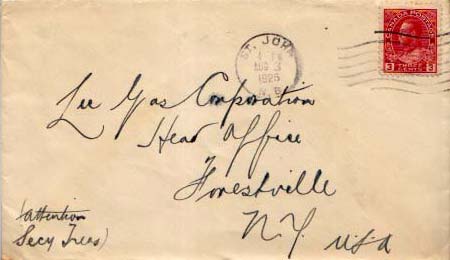 ST. JOHN
AUG 3
1925
N.B.
CANADA POSTAGE
3 3
Lee Gas Corporation
Head Office
Forestville
N.Y. USA
(attention
Secy Treas)